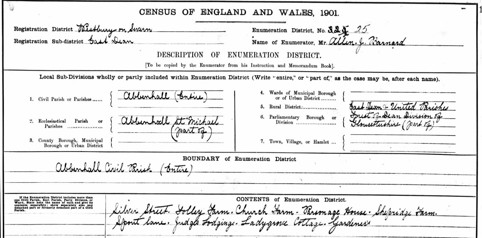 CENSUS OF ENGLAND AND WALES, 1901.
Registration District Westbury on Severn
Enumeration District, No. 25
Registration Sub-district East Dean
Name of Enumerator, Mr. Allen J. Barnard
DESCRIPTION OF ENUMERATION DISTRICT.
[To be copied by the Enumerator from his Instruction and Memorandum Book].
Local Sub-Divisions wholly or partly included within Enumeration District (Write "entire," or "part of," as the case may be, after each name).
1. Civil Parish or Parishes Abbenhall (Entire)
2. Ecclesiastical Parish or Parishes Abbenhall St Michael (part of)
3. County Borough, Municipal Borough or Urban District
4. Wards of Municipal Borough or of Urban District
5. Rural District East Dean & United Parishes
6. Parliamentary Borough or Division Forest of Dean Division of Gloucestershire (part of)
7. Town, Village, or Hamlet
BOUNDARY of Enumeration District
Abbenhall Civil Parish (Entire)
CONTENTS of Enumeration District.
Silver Street. Folley Farm. Church Farm. Parsonage House. Shipridge Farm.
Spout Lane. Judge's Lodgings. Ladygrove Cottage. Gardener